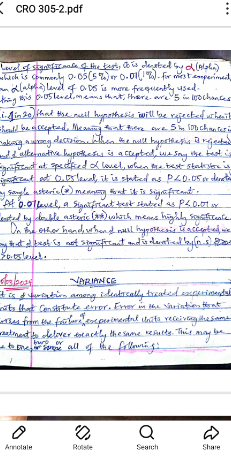 CRO 305-2.pdf
level of significance of the test, it is denoted by α (Alpha)
which is commonly 0.05 (5%) or 0.01 (1%). for most experiment,
an α (alpha) level of 0.05 is more frequently used.
this 0.05 level, means that, there are 5 in 100 chances
(1 in 20) that the null hypothesis will be rejected when it
should be accepted. Meaning that there are 5 in 100 chances in
making a wrong decision. When the null hypothesis is rejected
and alternative hypothesis is accepted, we say the test is
significant at specified α level, when the test statistic is
significant at 0.05 level, it is stated as P<0.05 or denoted
by single asteric (*) meaning that it is significant.
At 0.01 level, a significant test stated as P<0.01 or
denoted by double asteric (**) which means highly significance.
On the other hand when null hypothesis is accepted, we
say that test is not significant and is denoted by (n.s)
0.05 level.
VARIANCE
It is variation among identically treated experimental
units that constitute error. Error is the variation that
arises from the failure of experimental units receiving the same
treatment to deliver exactly the same results. This may be
due to one, two or all of the following:
Annotate
Rotate
Search
Share